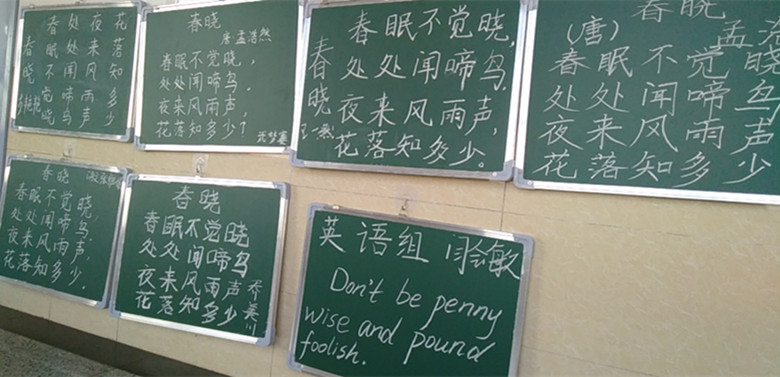 春晓
春眠不觉晓
处处闻啼鸟
夜来风雨声
花落知多少
春晓
唐 孟浩然
春眠不觉晓，
处处闻啼鸟。
夜来风雨声，
花落知多少？
春晓
春眠不觉晓，
处处闻啼鸟。
夜来风雨声，
花落知多少。
春晓
(唐) 孟浩
春眠不觉晓
处处闻啼鸟
夜来风雨声
花落知多少
春晓
春眠不觉晓，
处处闻啼鸟。
夜来风雨声，
花落知多少。
春晓
春眠不觉晓
处处闻啼鸟
夜来风雨声
花落知多少
英语组 闫会敏
Don't be penny
wise and pound
foolish.